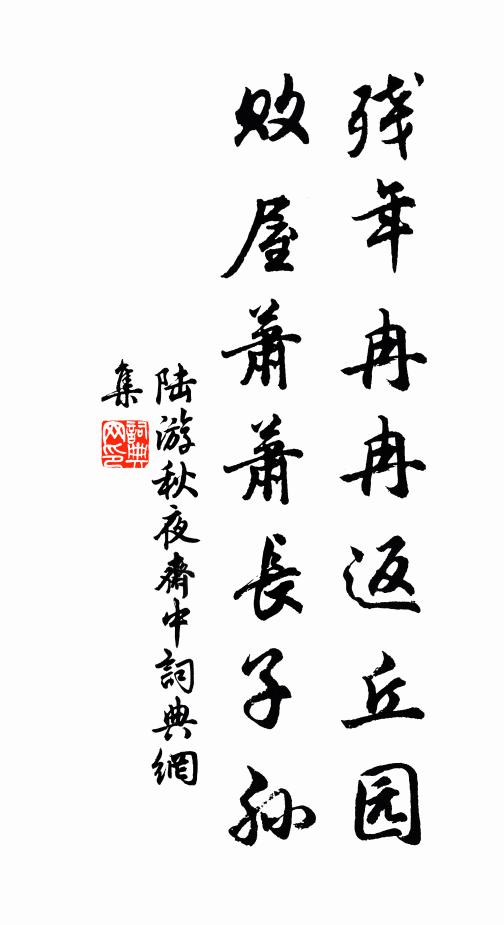 残年冉冉返丘园
败屋萧萧長子孙
陆游秋夜齋中詞典網
集
詞典
网印